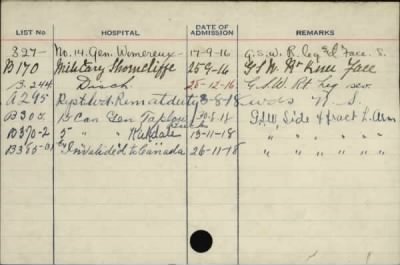 LIST No HOSPITAL DATE OF ADMISSION REMARKS
327- No. 14. Gen. Wimereux- 17-9-16 G.S.W. R. leg & Face. S.
B170 Military Shorncliffe 25-9-16 G.S.W. Rt Knee Face
B.244 Disch. 28-12-16 G.S.W. Rt Leg sev.
A295 Rem at duty 3-8-18 Wds N.S.
B305 Can Gen Taplow 30.8.18 G.S.W. Side & fract L. Arm
B370-2 5 " " Kirkdale 13-11-18 " " " " "
Invalided to Canada 26-11-18 " " " " "